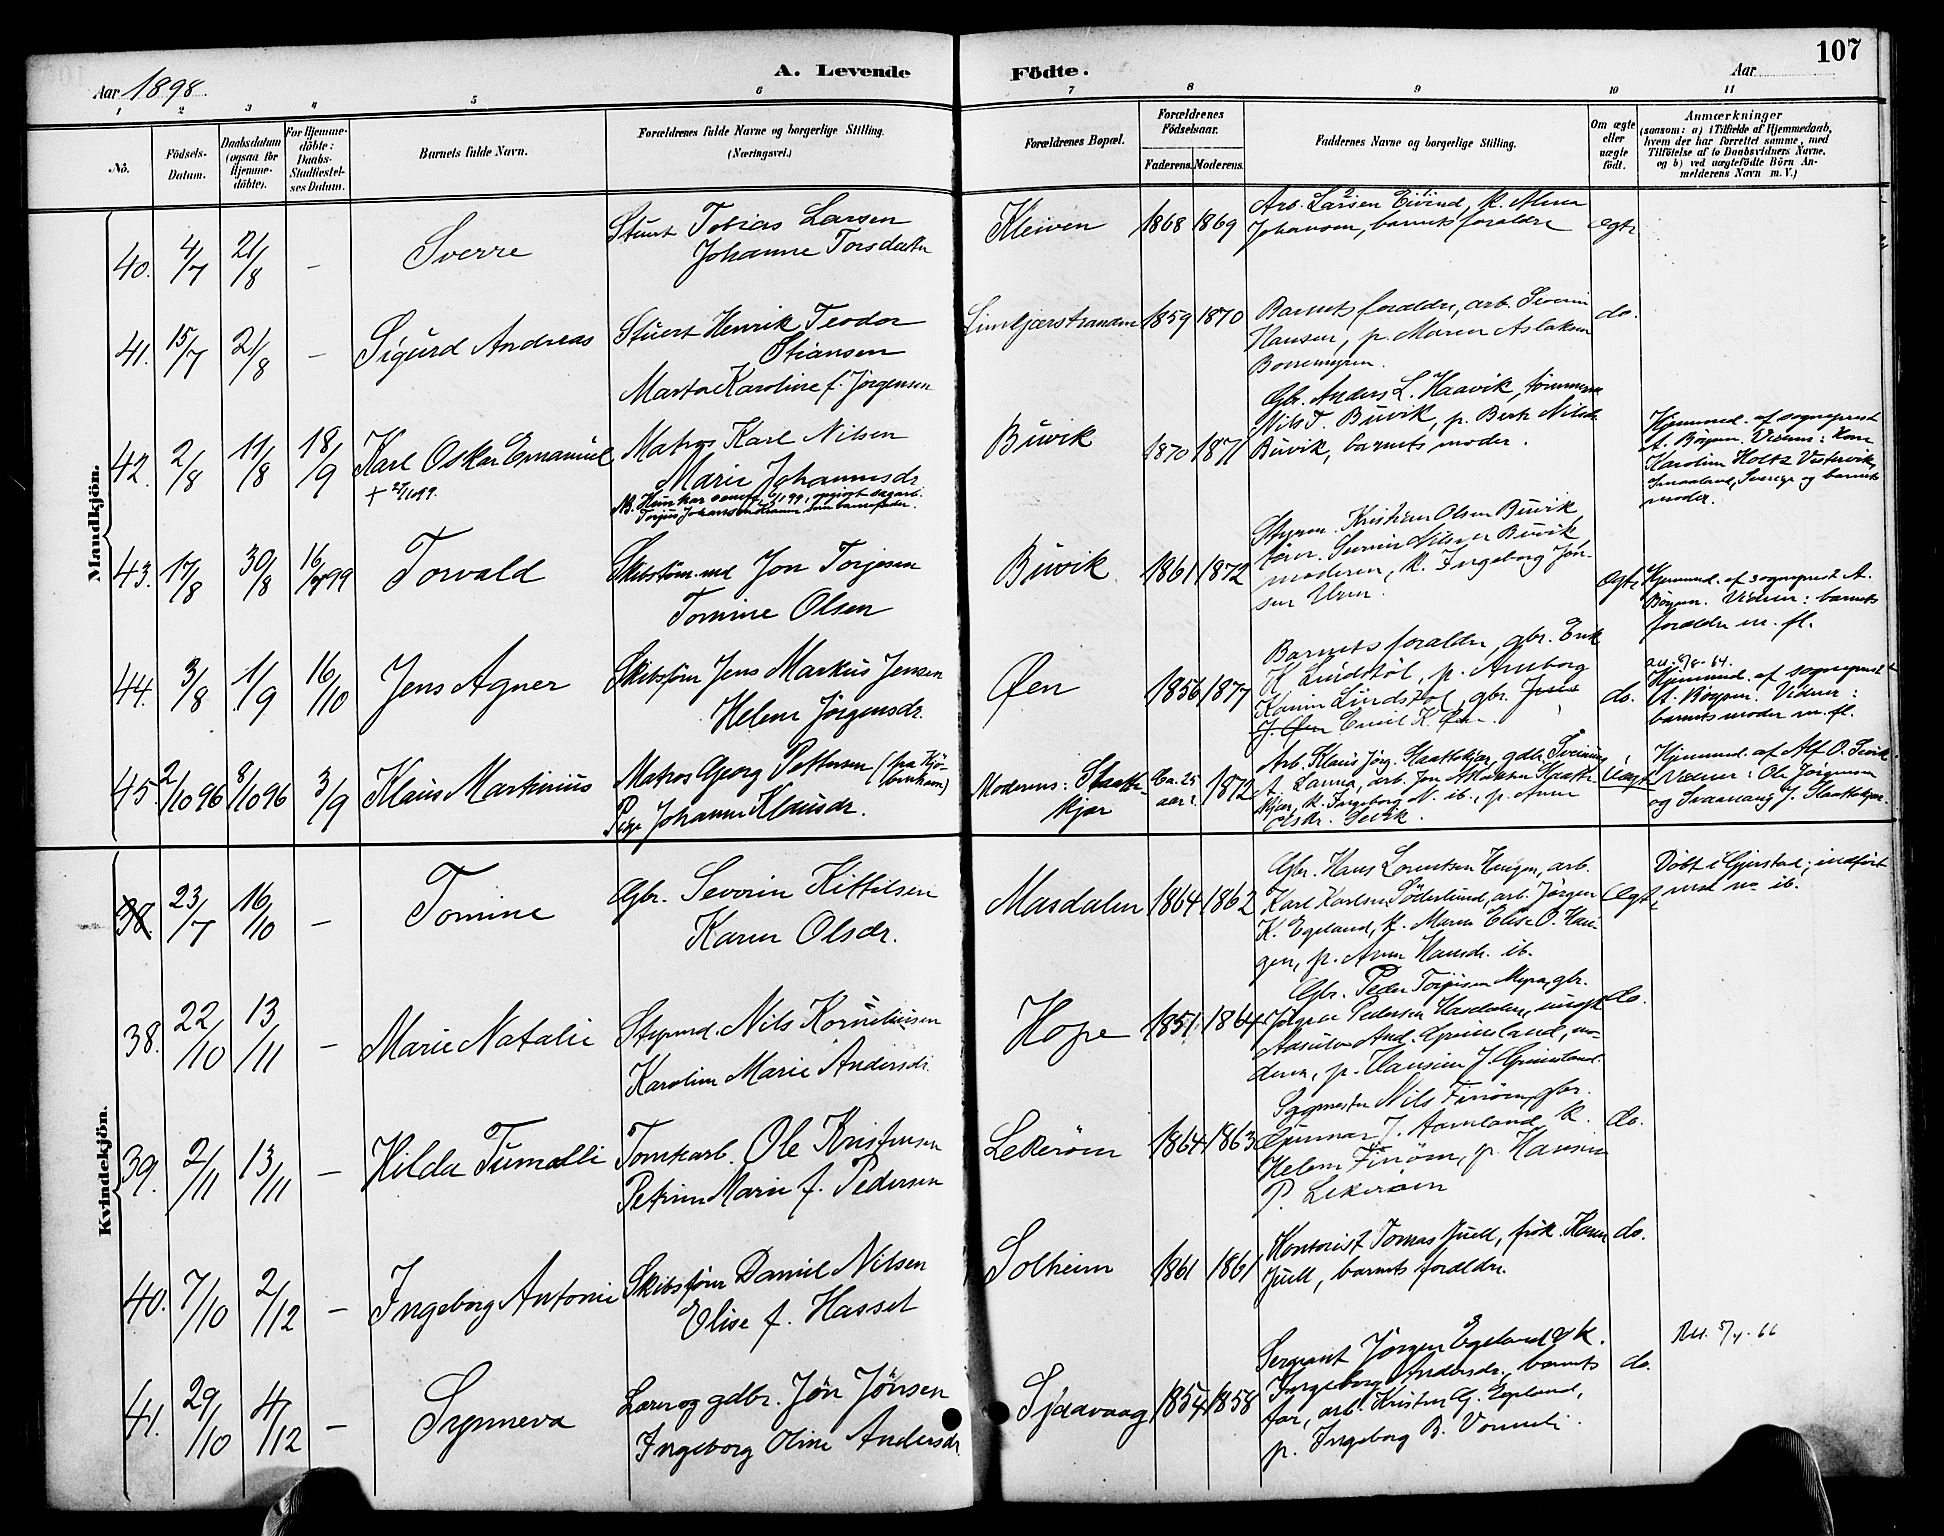 107
A. Levende Födte.
Aar 1898.
Aar
1 2 3 4 5 6 7 8 9 10 11
No.
Födsels-Datum.
Daabsdatum (ogsaa for Hjemme-döbte).
For Hjemme-döbte: Daabs-Stadfæstel-ses Datum.
Barnets fulde Navn.
Forældrenes fulde Navne og borgerlige Stilling.
(Næringsvei.)
Forældrenes Bopæl.
Forældrenes Födselsaar.
Faderens. Moderens.
Faddernes Navne og borgerlige Stilling.
Om ægte eller uægte født.
Anmærkninger
(saasom: a) i Tilfælde af Hjemmedaab, hvem der har forrettet samme, med Tilföielse af to Daabsvidners Navne, og b) ved uægtefödte Börn An-melderens Navn m. V.)
Mandkjön.
40. 4/7 21/8 – Sverre
Stuert Tobias Larsen
Johanne Torsdatter
Kleiven 1868 1869
Arb. Larsen Eivind, k.
Johansen, barnets forældre
ægte
41. 15/7 2/8 – Sigurd Andreas
Stuert Henrik Teodor
Stiansen
Marta Karoline f. Jørgensen
1859 1870
Barnets forældre, arb. Severin
Hansen, p. Maren Aslaksen
do.
42. 2/8 11/8 18/9 Karl Oskar Emanuel
Matros Karl Nilsen
Marie Johannesdr.
Buvik 1870 1871
Gbr. Anders L. Haavik, tømmerm.
Nils T. Buvik, p. Berte Nilsdr.
Buvik, barnets moder.
Hjemmed. af sogneprest
Karoline Holtz Vestervik,
Smaaland, Sverige og barnets
moder.
43. 17/8 30/8 Torvald
Skibstøm.md Jon Torjesen
Tomine Olsen
Buvik 1861 1872
Styrm. Kristian Olsen Buvik,
tømr. Severin Nilsen Buvik
moderen, k. Ingeborg Jon-
sen
ægte
Hjemmed. af sogneprest A.
Vidner: barnets
forældre m. fl.
44. 3/8 1/9 16/10 Jens Agner
Skibsfører Jens Markus Jensen
Helene Jørgensdr.
Øen 1856 1877
Barnets forældre, gbr. Erik
K. Lindstøl, p. Anneborg
Lindstøl, gbr. Jens
J. Øen Emil K. Øen.
do.
Hjemmed. af sogneprest
Vidner:
barnets moder m. fl.
45. 2/10 96 8/10 96 3/9 Klaus Martinius
Matros Georg Pettersen (fra Kjø-
benhavn)
Pige Johanne Klausdr.
Moderens: Staatte-
kjær
Ca. 25
aar 1872
uægte
Hjemmed. af Alf O.
Vidner: Ole Jørgensen
Kvindekjön.
38 23/7 16/10 – Tomine
Gbr. Severin Kittilsen
Karen Olsdr.
Masdalen 1864 1862
Gbr. Hans Lorentsen Haugen, arb.
Karl Karlsen Söderlund, arb. Jørgen
K. Egeland, k. Maren Elise O. Hau-
gen, p. Anne Hansdr. ib.
Ægte
Døbt i Gjerstad; indført
38. 22/10 13/11 – Marie Natalie
Styrmd. Nils Korneliusen
Karoline Marie Andersdr.
Hope 1851 1864
Gbr. Peder Torjusen Myra, gbr.
Jørgen Pedersen Masdalen, ungk.
Aasulv And. Grimsland, mo-
deren, p. Hansine J. Grimsland.
do.
39. 2/11 13/11 – Hilda Tumalli
Tomtearb. Ole Kristensen
Petrine Marie f. Pedersen
Lekerøen 1864 1863
Sagmester Nils Finøen, gbr.
Gunnar J. Aamland, k.
Helene Finøen, p. Hansine
P. Lekerøen
do.
40. 7/10 2/12 – Ingeborg Antonie
Skibsfører Daniel Nilsen
Elise f. Hassel
Solheim 1861 1861
Kontorist Tomas Juell, frøk. Karen
Juell, barnets forældre.
do.
41. 29/10 4/12 – Synneva
Larm og gdbr. Jøn Jönsen
Ingeborg Oline Andersdr.
Sjaavaag 1854 1858
Sergeant Jørgen Egeland, k.
Ingeborg Andersdr., barnets
far, arb. Kristen G. Egeland,
p. Ingeborg B. Vormeli.
do.